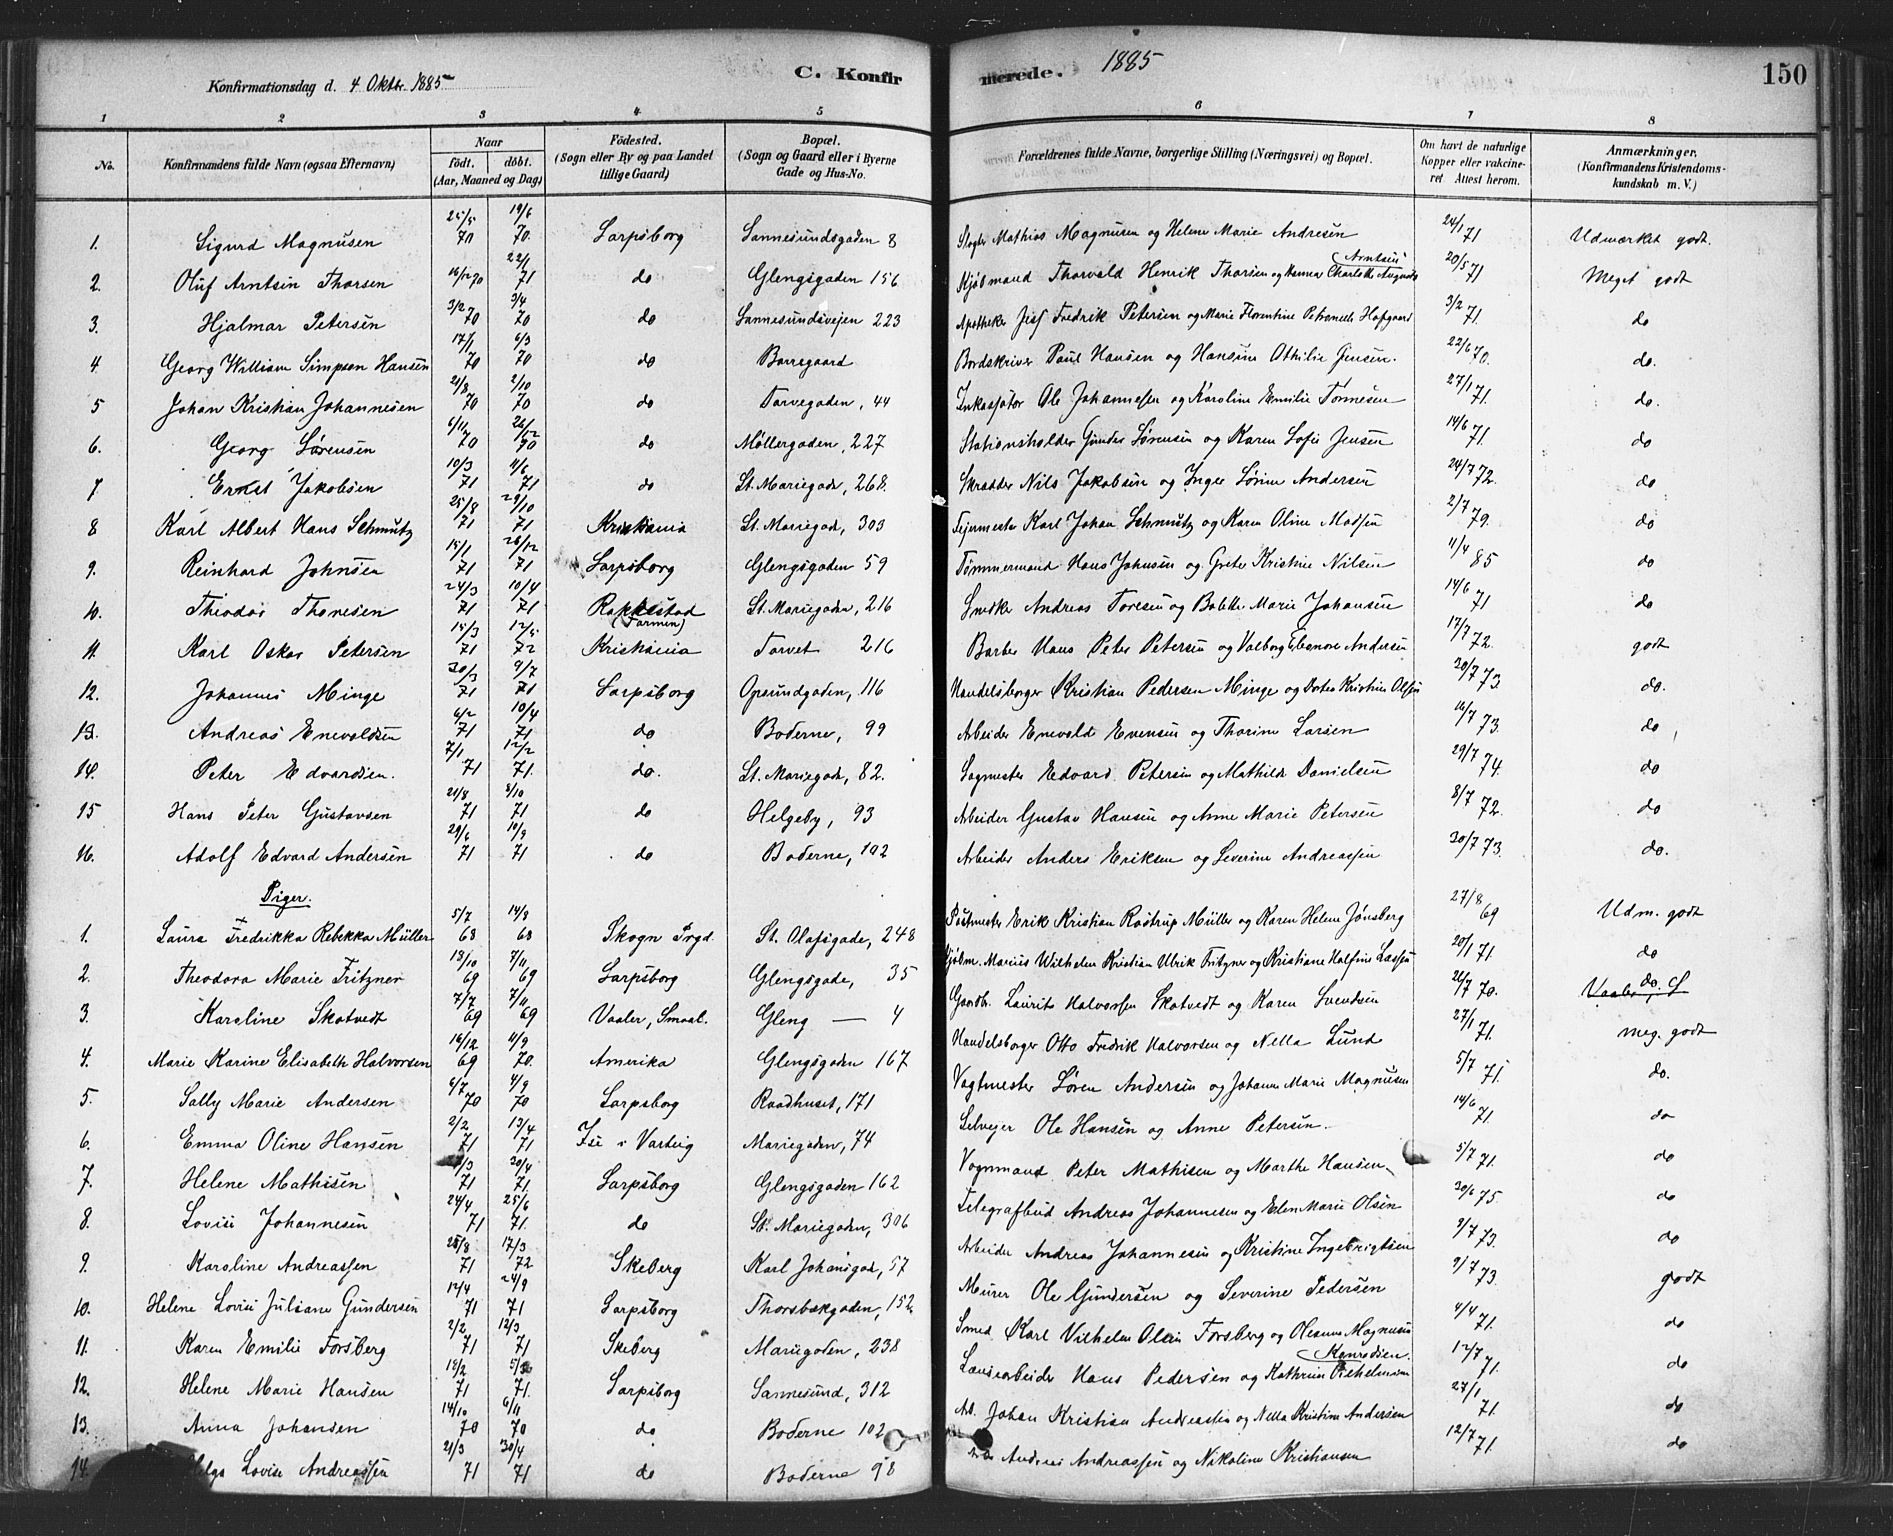 Konfirmationsdag d. 4 Oktbr. 1885 C. Konfirmerede. 1885 150
1 2 3 4 5 6 7 8
No. Konfirmandens fulde Navn (ogsaa Efternavn) Naar födt. döbt. (Aar, Maaned og Dag) Födested. (Sogn eller By og paa Landet tillige Gaard) Bopæl. (Sogn og Gaard eller i Byerne Gade og Hus-No. Forældrenes fulde Navne, borgerlige Stilling (Næringsvei) og Bopæl. Om havt de naturlige Kopper eller vakcineret Attest herom. Anmærkninger. (Konfirmandens Kristendomskundskab m. V.)
1. Sigurd Magnusen 25/5 70 19/6 70. Sarpsborg Sannesundsgaden 8 Mathias Magnusen og Helene Marie Andresen 24/1 71 Udmærket godt.
2. Oluf Arntsen Thorsen 16/12 70 22/1 71 do Glengsgaden 156 Kjøbmand Thorvald Henrik Thorsen og Hanna Charlotte Augusta Arntsen 20/5 71 Meget godt
3. Hjalmar Petersen 3/2 70 3/4 70 do Sannesundsvejen 223 Apotheker Fredrik Petersen og Marie Florentine Petronele Hofgaard 3/2 71. do
4. Georg William Simpson Hansen 17/1 70 6/3 70 do Borregaard Bordskriver Paul Hansen og Hansine Othilie Jensen. 22/6 70. do.
5 Johan Kristian Johannesen 21/8 70 2/10 70 do Torvegaden, 44 Inkassator Ole Johannesen og Karoline Emilie Tønnesen 27/1 71. do.
6. Georg Sørensen 6/11 70 26/12 70 do Møllergaden, 227 Stationsholder Gunder Sørensen og Karen Sofie Jensen 14/6 71. do
7 Ernst Jakobsen 10/3 71 11/6 71 do St. Mariegade, 268. Skrædder Nils Jakobsen og Inger Sørine Andersen 24/7 72. do
8 Karl Albert Hans Schmutz 25/8 71 29/10 71 Kristiania St. Mariegade, 303 Fejermester Karl Johan Schmutz og Karen Oline Madsen 2/7 79. do
9. Reinhard Johnsen 15/1 71 26/12 71 Sarpsborg Glengsgaden 59 Tømmermand Hans Johnsen og Grete Kristine Nilsen 11/4 85 do
10. Theodor Thoresen 24/3 71 10/4 71 Rakkestad St. Mariegaden, 216 Snedker Andreas Toresen og Bolette Marie Johansen 14/6 71 do
11. Karl Oskar Petersen 15/3 71 12/5 72 Kristiania Torvet 216 Barber Hans Peter Petersen og Valborg Eleonore Andersen 17/7 72. godt
12. Johannes Minge 30/3 71 9/7 71 Sarpsborg Opsundgaden, 116 Handelsborger Kristian Pedersen Minge og Dortea Kristine Olsen 30/7 73. do.
13. Andreas Enevoldsen 6/2 71 10/4 71. do Boderne, 99 Arbeider Enevold Evensen og Thorine Larsen 16/7 73. do
14. Peter Edvardsen. 7/1 71 12/2 71. do. St. Mariegade, 82. Sagmester Edvard Petersen og Mathilde Danielsen 29/7 74. do
15 Hans Peter Gustavsen 21/8 71 8/10 71 do Helgeby, 93 Arbeider Gustav Hansen og Anne Marie Petersen 8/7 72. do
16. Adolf Edvard Andersen 29/6 71 10/9 71 do Boderne, 102 Arbeider Anders Eriksen og Severine Andreassen 30/7 73. do.
Piger.
1. Laura Fredrikka Rebekka Müller 5/7 68 14/8 68 Skogn Prgd. St. Olafsgade, 248 Postmester Erik Kristian Rostrup Müller og Karen Helene Jønsberg 27/8 69 Udm. godt
2. Theodora Marie Fritzner 13/10 69 7/11 69 Sarpsborg Glengsgade, 35 Kjøbm. Marius Wilhelm Kristian Ulrik Fritzner og Kristiane Lassen 20/1 71. do
3. Karoline Skotvedt 7/7 69 7/11 69 Vaaler, Smaal. Gleng — 4 Gaardbr. Laurits Halvorsen Skotvedt og Karen Svendsen 21/7 70. do.
4. Marie Karine Elisabeth Halvorsen 16/12 69 11/9 70. Amerika Glengsgaden 167 Handelsborger Otto Fredrik Halvorsen og Nella Lund 27/1 71. meg. godt
5. Sally Marie Andersen 6/7 70 4/9 70 Sarpsborg Raadhuset, 171 Vagtmester Søren Andersen og Johanne Marie Magnusen 5/7 71. do.
6. Emma Oline Hansen 2/2 71 13/4 71 Ise i Varteig Mariegaden, 74 Selvejer Ole Hansen og Anne Petersen. 14/6 71. do
7. Helene Mathisen 1/3 71 30/4 71. Sarpsborg Glengsgaden 162 Vognmand Peter Mathisen og Marthe Hansen 5/7 71. do
8. Lovise Johannesen 24/4 71 25/6 71. do St. Mariegaden, 306 Telegrafbud Andreas Johannesen og Elen Marie Olsen 30/6 75 do
9. Karoline Andreassen 25/8 71 17/3 72 Skeberg Karl Johansgade, 57 Arbeider Andreas Johannesen og Kristine Ingebrigtsen 9/7 73. do
10. Helene Lovise Juliane Gundersen 12/4 71 24/9 71 Sarpsborg Thorsbækgaden, 152. Murer Ole Gundersen og Severine Pedersen 9/7 73. godt
11. Karen Emilie Forsberg 2/2 71 12/3 71 Skeberg Mariegaden, 238 Smed Karl Vilhelm Olsen Forsberg og Magnusen 4/4 71. do
12. Helene Marie Hansen 18/2 71 71. Sarpsborg Sannesund, 312 Hans Pedersen og Kathrine Konradsen. 12/7 71. do
13. Anna Johansen 14/10 70 6/11 70 do Boderne 102 Ar. Johan Kristian Andreassen og Nella Kristine Andersen 27/1 71. do
14. Helga Lovise Andreassen 21/3 71 30/4 71 do Boderne 98 Andreas Andreassen og Nikoline Kristiansen 12/7 71. do